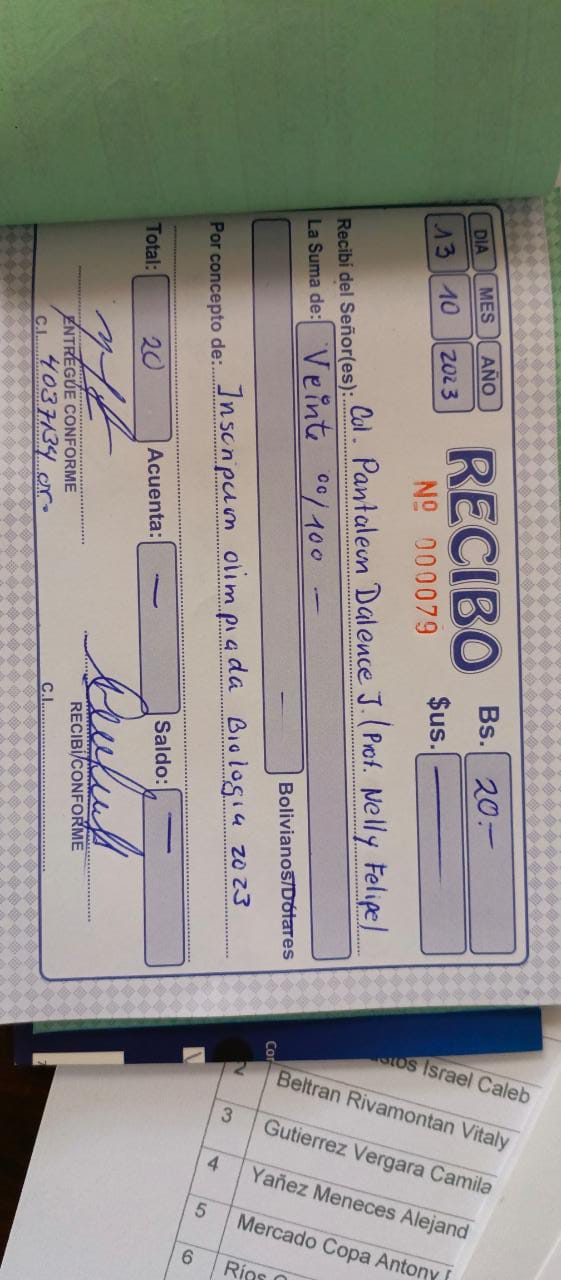 DIA MES AÑO
13 10 2023
RECIBO
Nº 000079
Bs. 20.-
$us. —
Recibí del Señor(es): Col. Pantaleon Dalence J. (Prof. Nelly Felipe)
La Suma de: Veinte 00/100 —
— Bolivianos/Dólares
Por concepto de: Inscripcion olimpiada Biologia 2023
Total: 20 Acuenta: — Saldo: —
ENTREGUE CONFORME RECIBI CONFORME
C.I. 4037134 or. C.I.
Israel Caleb
2 Beltran Rivamontan Vitaly
3 Gutierrez Vergara Camila
4 Yañez Meneces Alejand
5 Mercado Copa Antony
6 Ríos